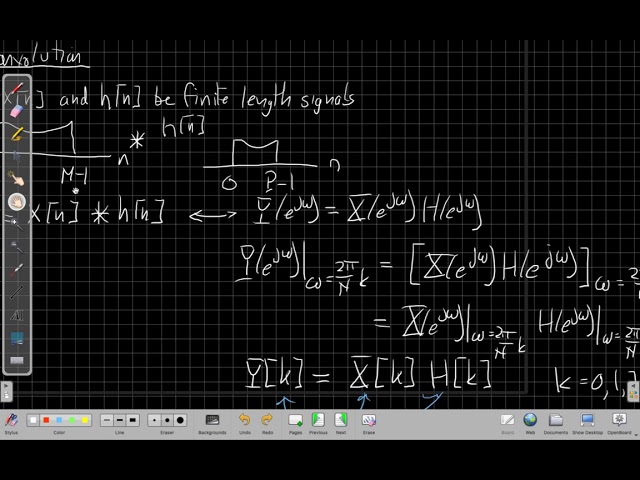 nvolution
x[n] and h[n] be finite length signals
* h[n]
n
n
M-1
0 P-1
= x[n] * h[n] ⟷ Y(e^jω) = X(e^jω) H(e^jω)
Y(e^jω)|ω=2π/N k = [X(e^jω) H(e^jω)]ω=2
= X(e^jω)|ω=2π/N k H(e^jω)|ω=2π/N
Y[k] = X[k] H[k] k = 0, 1,
Stylus Color Line Eraser Backgrounds Undo Redo Pages Previous Next Erase Board Web Documents Show Desktop OpenBoard